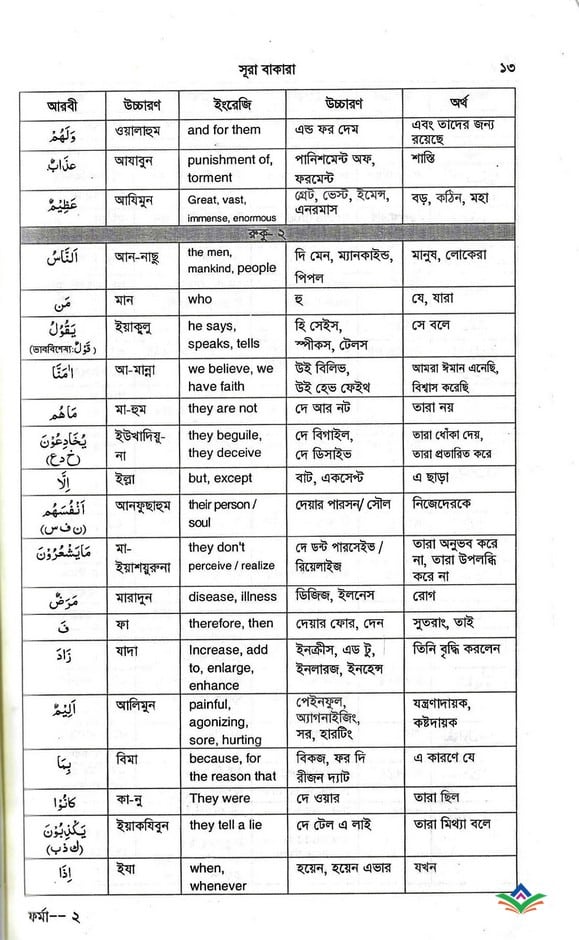 সূরা বাকারা ১৩
আরবী উচ্চারণ ইংরেজি উচ্চারণ অর্থ
وَلَهُمْ ওয়ালাহুম and for them এন্ড ফর দেম এবং তাদের জন্য
রয়েছে
عَذَابٌ আযাবুন punishment of, পানিশমেন্ট অফ, শাস্তি
torment ফরমেন্ট
عَظِيْمٌ আযিমুন Great, vast, গ্রেট, ভেস্ট, ইমেন্স, বড়, কঠিন, মহা
immense, enormous এনরমাস
রুকু- ২
اَلنَّاسُ আন-নাছু the men, দি মেন, ম্যানকাইন্ড, মানুষ, লোকেরা
mankind, people পিপল
مَن মান who হু যে, যারা
يَقُوْلُ ইয়াকুলু he says, হি সেইস, সে বলে
(ভাববিশেষ্য:قَوْلٌ) speaks, tells স্পীকস, টেলস
اٰمَنَّا আ-মান্না we believe, we উই বিলিভ, আমরা ঈমান এনেছি,
have faith উই হেভ ফেইথ বিশ্বাস করেছি
مَاهُم মা-হুম they are not দে আর নট তারা নয়
يُخَادِعُوْنَ ইউখাদিয়ু- they beguile, দে বিগাইল, তারা ধোঁকা দেয়,
(خ د ع) না they deceive দে ডিসাইভ তারা প্রতারিত করে
اِلَّا ইল্লা but, except বাট, একসেপ্ট এ ছাড়া
اَنْفُسَهُم আনফুছাহুম their person / দেয়ার পারসন/ সৌল নিজেদেরকে
(ن ف س) soul
مَايَشْعُرُوْنَ মা- they don't দে ডন্ট পারসেইভ / তারা অনুভব করে
ইয়াশয়ুরুনা perceive / realize রিয়েলাইজ না, তারা উপলব্ধি
করে না
مَرَضٌ মারাদুন disease, illness ডিজিজ, ইলনেস রোগ
فَ ফা therefore, then দেয়ার ফোর, দেন সুতরাং, তাই
زَادَ যাদা Increase, add ইনক্রীস, এড টু, তিনি বৃদ্ধি করলেন
to, enlarge, ইনলারজ, ইনহেন্স
enhance
اَلِيْمٌ আলিমুন painful, পেইনফুল, যন্ত্রণাদায়ক,
agonizing, অ্যাগনাইজিং, কষ্টদায়ক
sore, hurting সর, হারটিং
بِمَا বিমা because, for বিকজ, ফর দি এ কারণে যে
the reason that রীজন দ্যাট
كَانُوْا কা-নু They were দে ওয়ার তারা ছিল
يَكْذِبُوْنَ ইয়াকযিবুন they tell a lie দে টেল এ লাই তারা মিথ্যা বলে
(ك ذ ب)
اِذَا ইযা when, হয়েন, হয়েন এভার যখন
whenever
ফর্মা-- ২